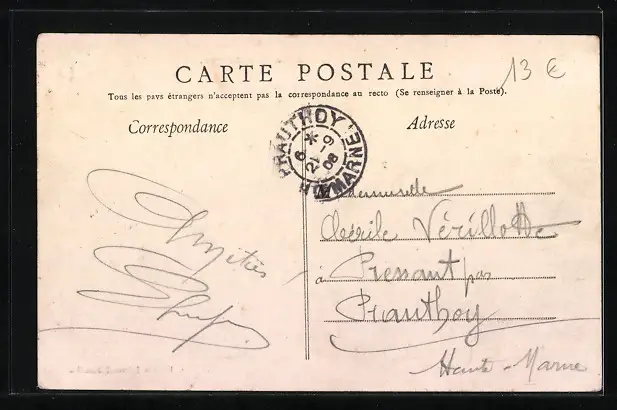 13 €
CARTE POSTALE
Tous les pays étrangers n'acceptent pas la correspondance au recto (Se renseigner à la Poste).
Correspondance
Adresse
PRAUTHOY
6 * 
21 - 9
08
Hte MARNE
Mademoiselle
Cécile Vérillotte
à Pressant par
Prauthoy
Haute-Marne
Amitiés